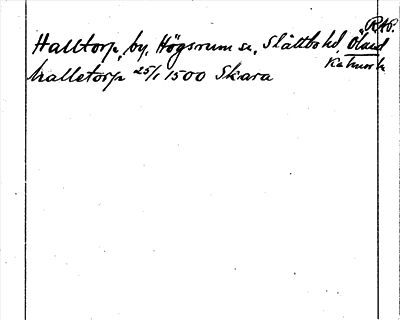 RAP.
Halltorp, by, Högsrum sn, Slättbo hd, Öland
Kalmar l.
halletorp 25/1 1500 Skara